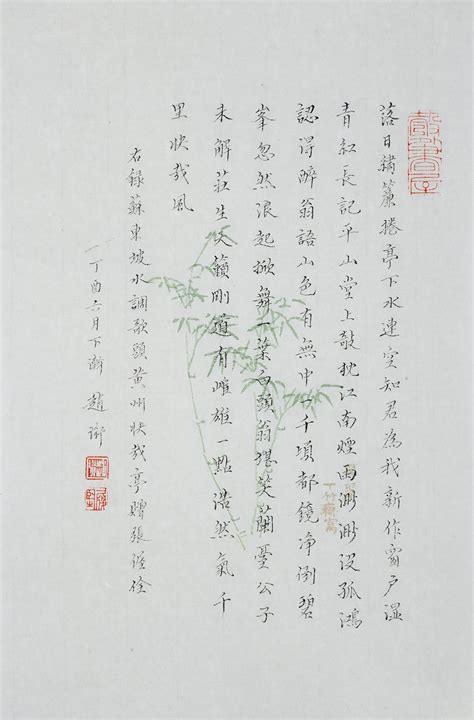 落日繡簾捲亭下水連空知君為我新作窗戶濕
青紅長記平山堂上敧枕江南煙雨渺渺沒孤鴻
認得醉翁語山色有無中一千頃都鏡淨倒碧
峯忽然浪起掀舞一葉白頭翁堪笑蘭臺公子
未解莊生天籟剛道有雌雄一點浩然氣千
里快哉風
右錄蘇東坡水調歌頭黃州快哉亭贈張偓佺
丁酉六月下澣 趙